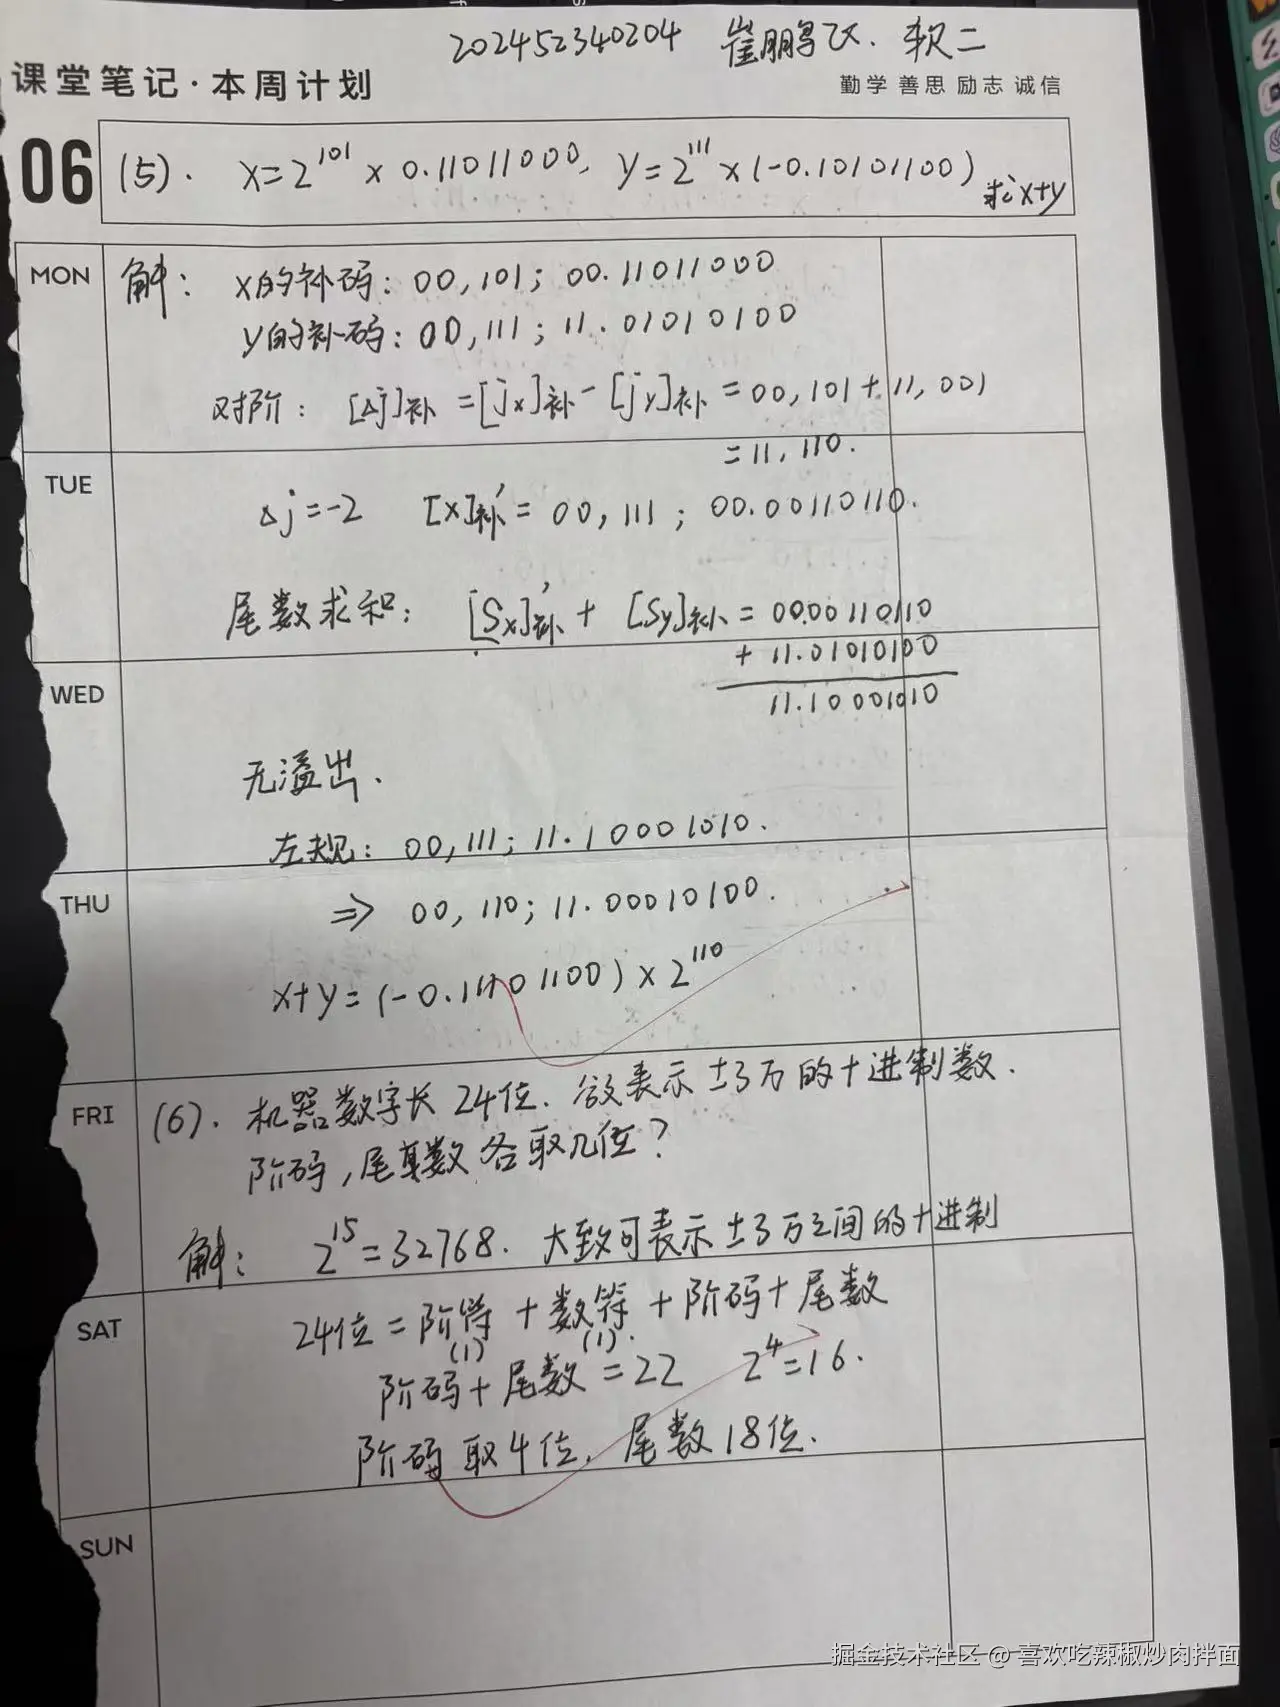 202452340204 崔鹏飞. 软二
课堂笔记·本周计划
勤学 善思 励志 诚信
06
(5). X=2^101 × 0.11011000, Y=2^111 ×(-0.10101100) 求x+y
MON
解: X的补码: 00,101; 00.11011000
y的补码: 00,111; 11.01010100
对阶: [Δj]补 =[jx]补-[jy]补=00,101+11,001
=11,110.
TUE
Δj=-2 [X]补'= 00,111; 00.00110110.
尾数求和: [Sx]补' + [Sy]补= 00.00110110
+ 11.01010100
11.10001010
WED
无溢出.
左规: 00,111; 11.10001010.
THU
⇒ 00,110; 11.00010100.
x+y=(-0.11101100)×2^110
FRI
(6). 机器数字长 24位. 欲表示 ±3万的十进制数.
阶码,尾数 各取几位?
解: 2^15=32768. 大致可表示±3万之间的十进制
SAT
24位=阶符+数符+阶码+尾数
(1) (1).
阶码+尾数=22 2^4=16.
阶码取4位, 尾数18位.
SUN
掘金技术社区 @ 喜欢吃辣椒炒肉拌面